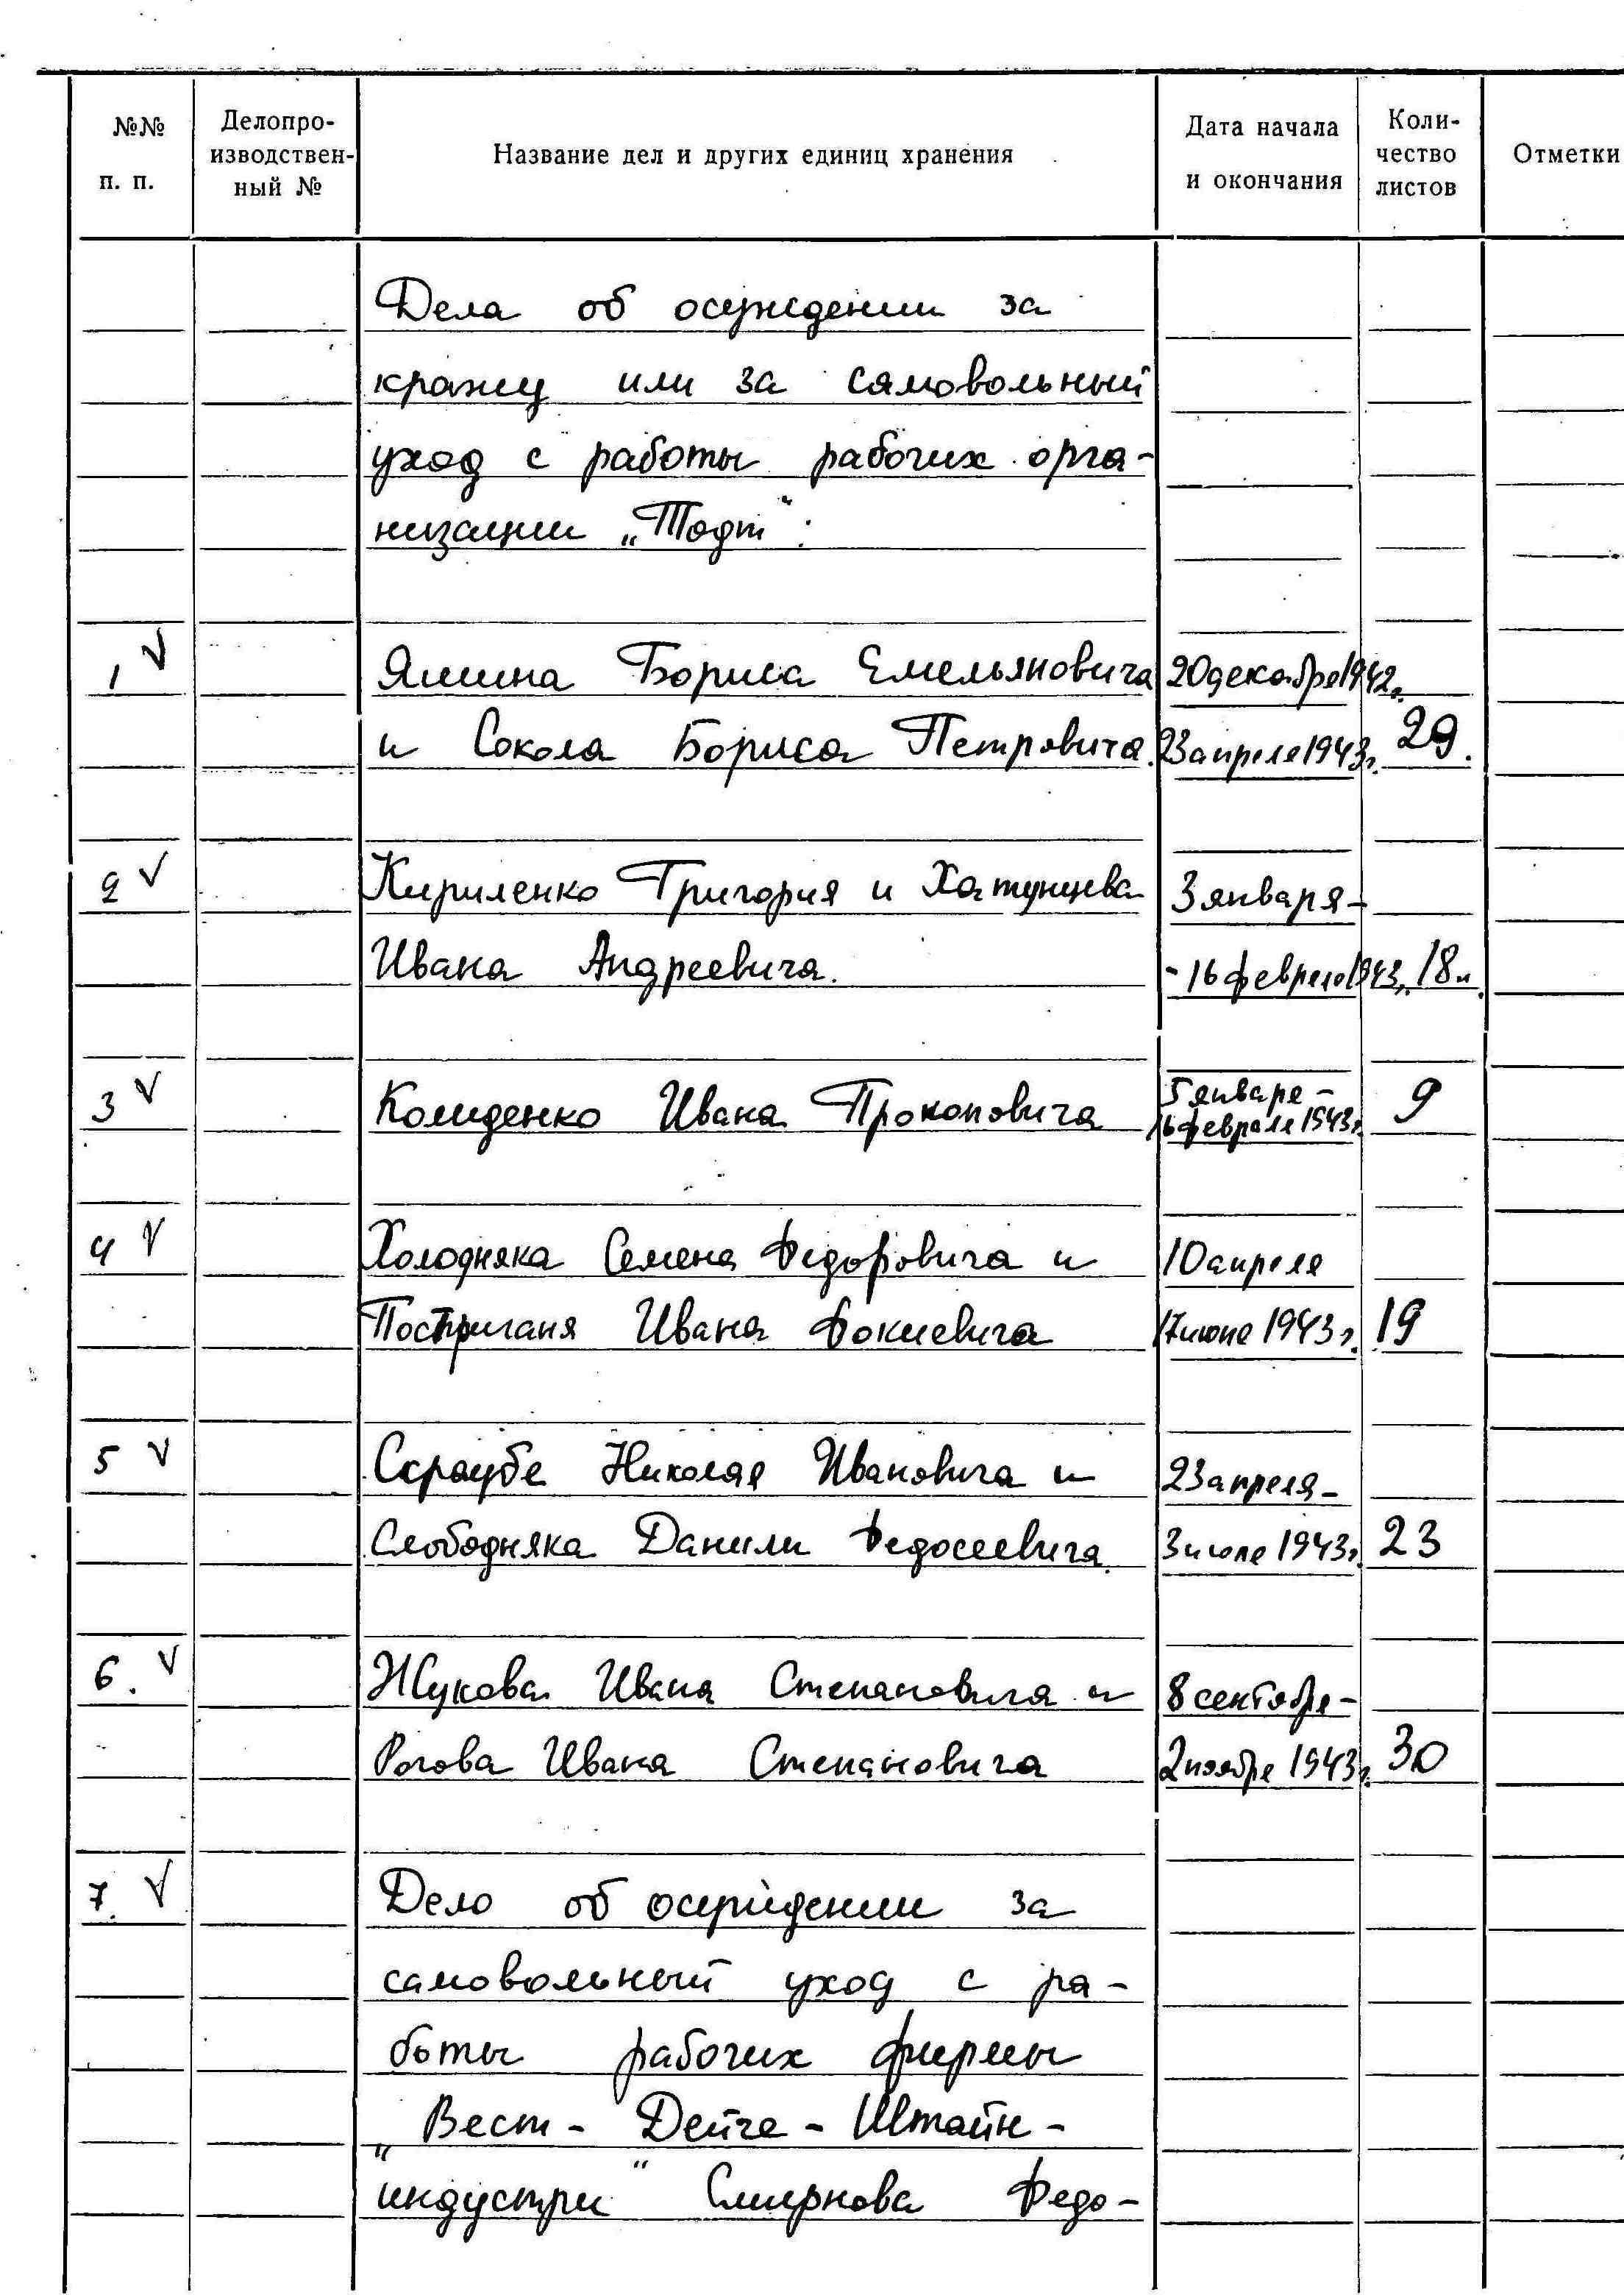 №№ п. п.
Делопро-
изводствен-
ный №
Название дел и других единиц хранения
Дата начала
и окончания
Коли-
чество
листов
Отметки
Дела об осуждении за
кражу или за самовольный
уход с работы рабочих орга-
низации „Тодт“:
1 √ Яшина Бориса Емельяновича 20 декабря 1942г.
и Сокола Бориса Петровича. 23 апреля 1943г. 29.
2 √ Кириленко Григория и Хатунцева 3 января-
Ивана Андреевича. -16 февраля 1943г. 18л.
3 √ Комиденко Ивана Прокоповича 5 января - 9
16 февраля 1943г.
4 √ Холодняка Семена Федоровича и 10 апреля
Постриганя Ивана Фокиевича 17 июня 1943г. 19
5 √ Скраубе Николая Ивановича и 23 апреля-
Слободняка Данили Федосеевича. 3 июля 1943г. 23
6. √ Жукова Ивана Степановича и 8 сентября-
Рогова Ивана Степановича 2 ноября 1943г. 30
7. √ Дело об осуждении за
самовольный уход с ра-
боты рабочих фирмы
„Вест - Дейче - Штайн -
индустри“ Смирнова Федо-